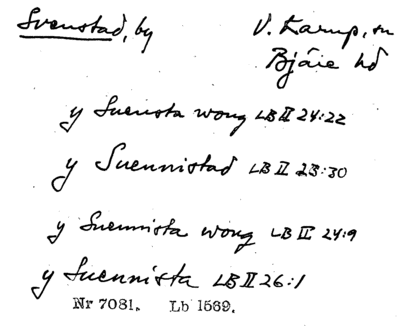 Svenstad, by
V. Karup, sn
Bjäre hd
y Suensta wong LB II 24:22
y Suennistad LB II 23:30
y Suennista wong LB II 24:9
y Suennista LB II 26:1
Nr 7081. Lb 1569.